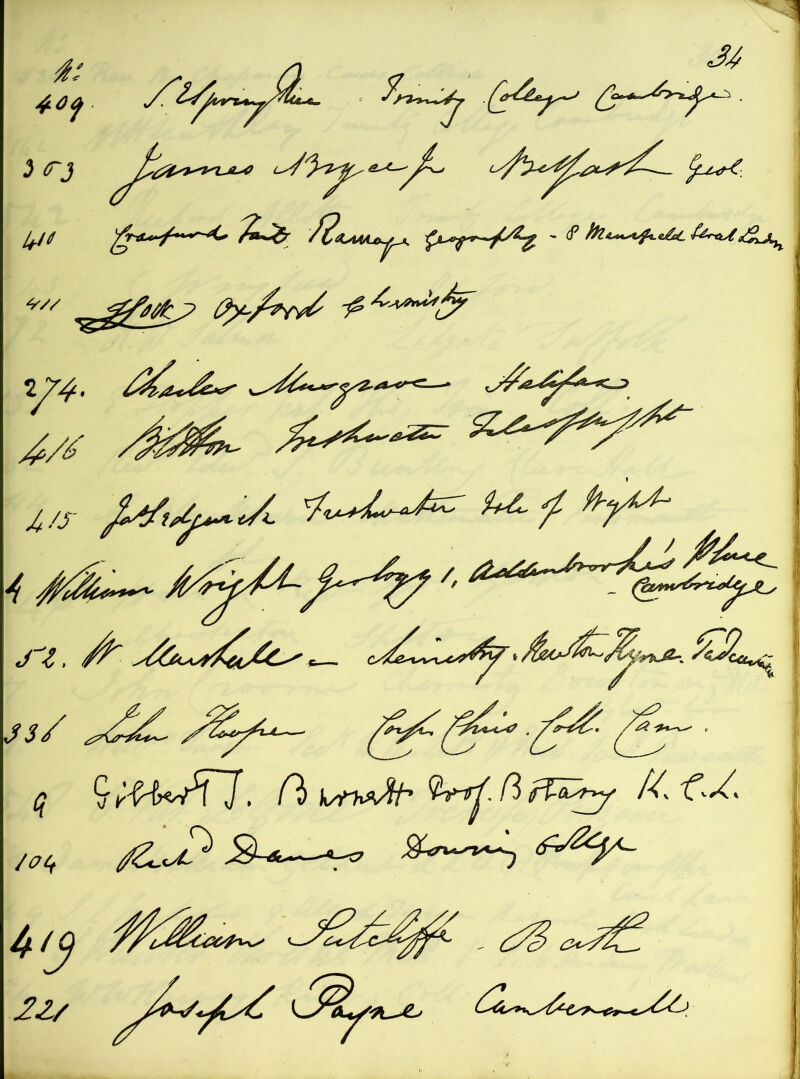 34
No
409. S. E Spring Rice Trinity College Cambridge.
303 James Bryce Jr Belfast Geol.
410 Craufurd Tait Ramage Geography - 8 Mansfield Street London
411 Oxford Chemistry
274. Charles Musgrave Halifax
416 Freshwater Isle of Wight
415 Jas Sedgwick Freshwater Isle of Wight
4 William Wright Geology 1, Addenbrooke's Place
Cambridge
52. W Marshall - chemistry. Newton Kyme. Tadcaster
336 John Hooper Corp. Chris. Coll. Cam.
9 Gilbert T. Burnett Prof. Botany K. C. L.
104 Richd Dawes Downing College
419 William Sutcliffe - Bath
221 Joseph Payne Camberwell